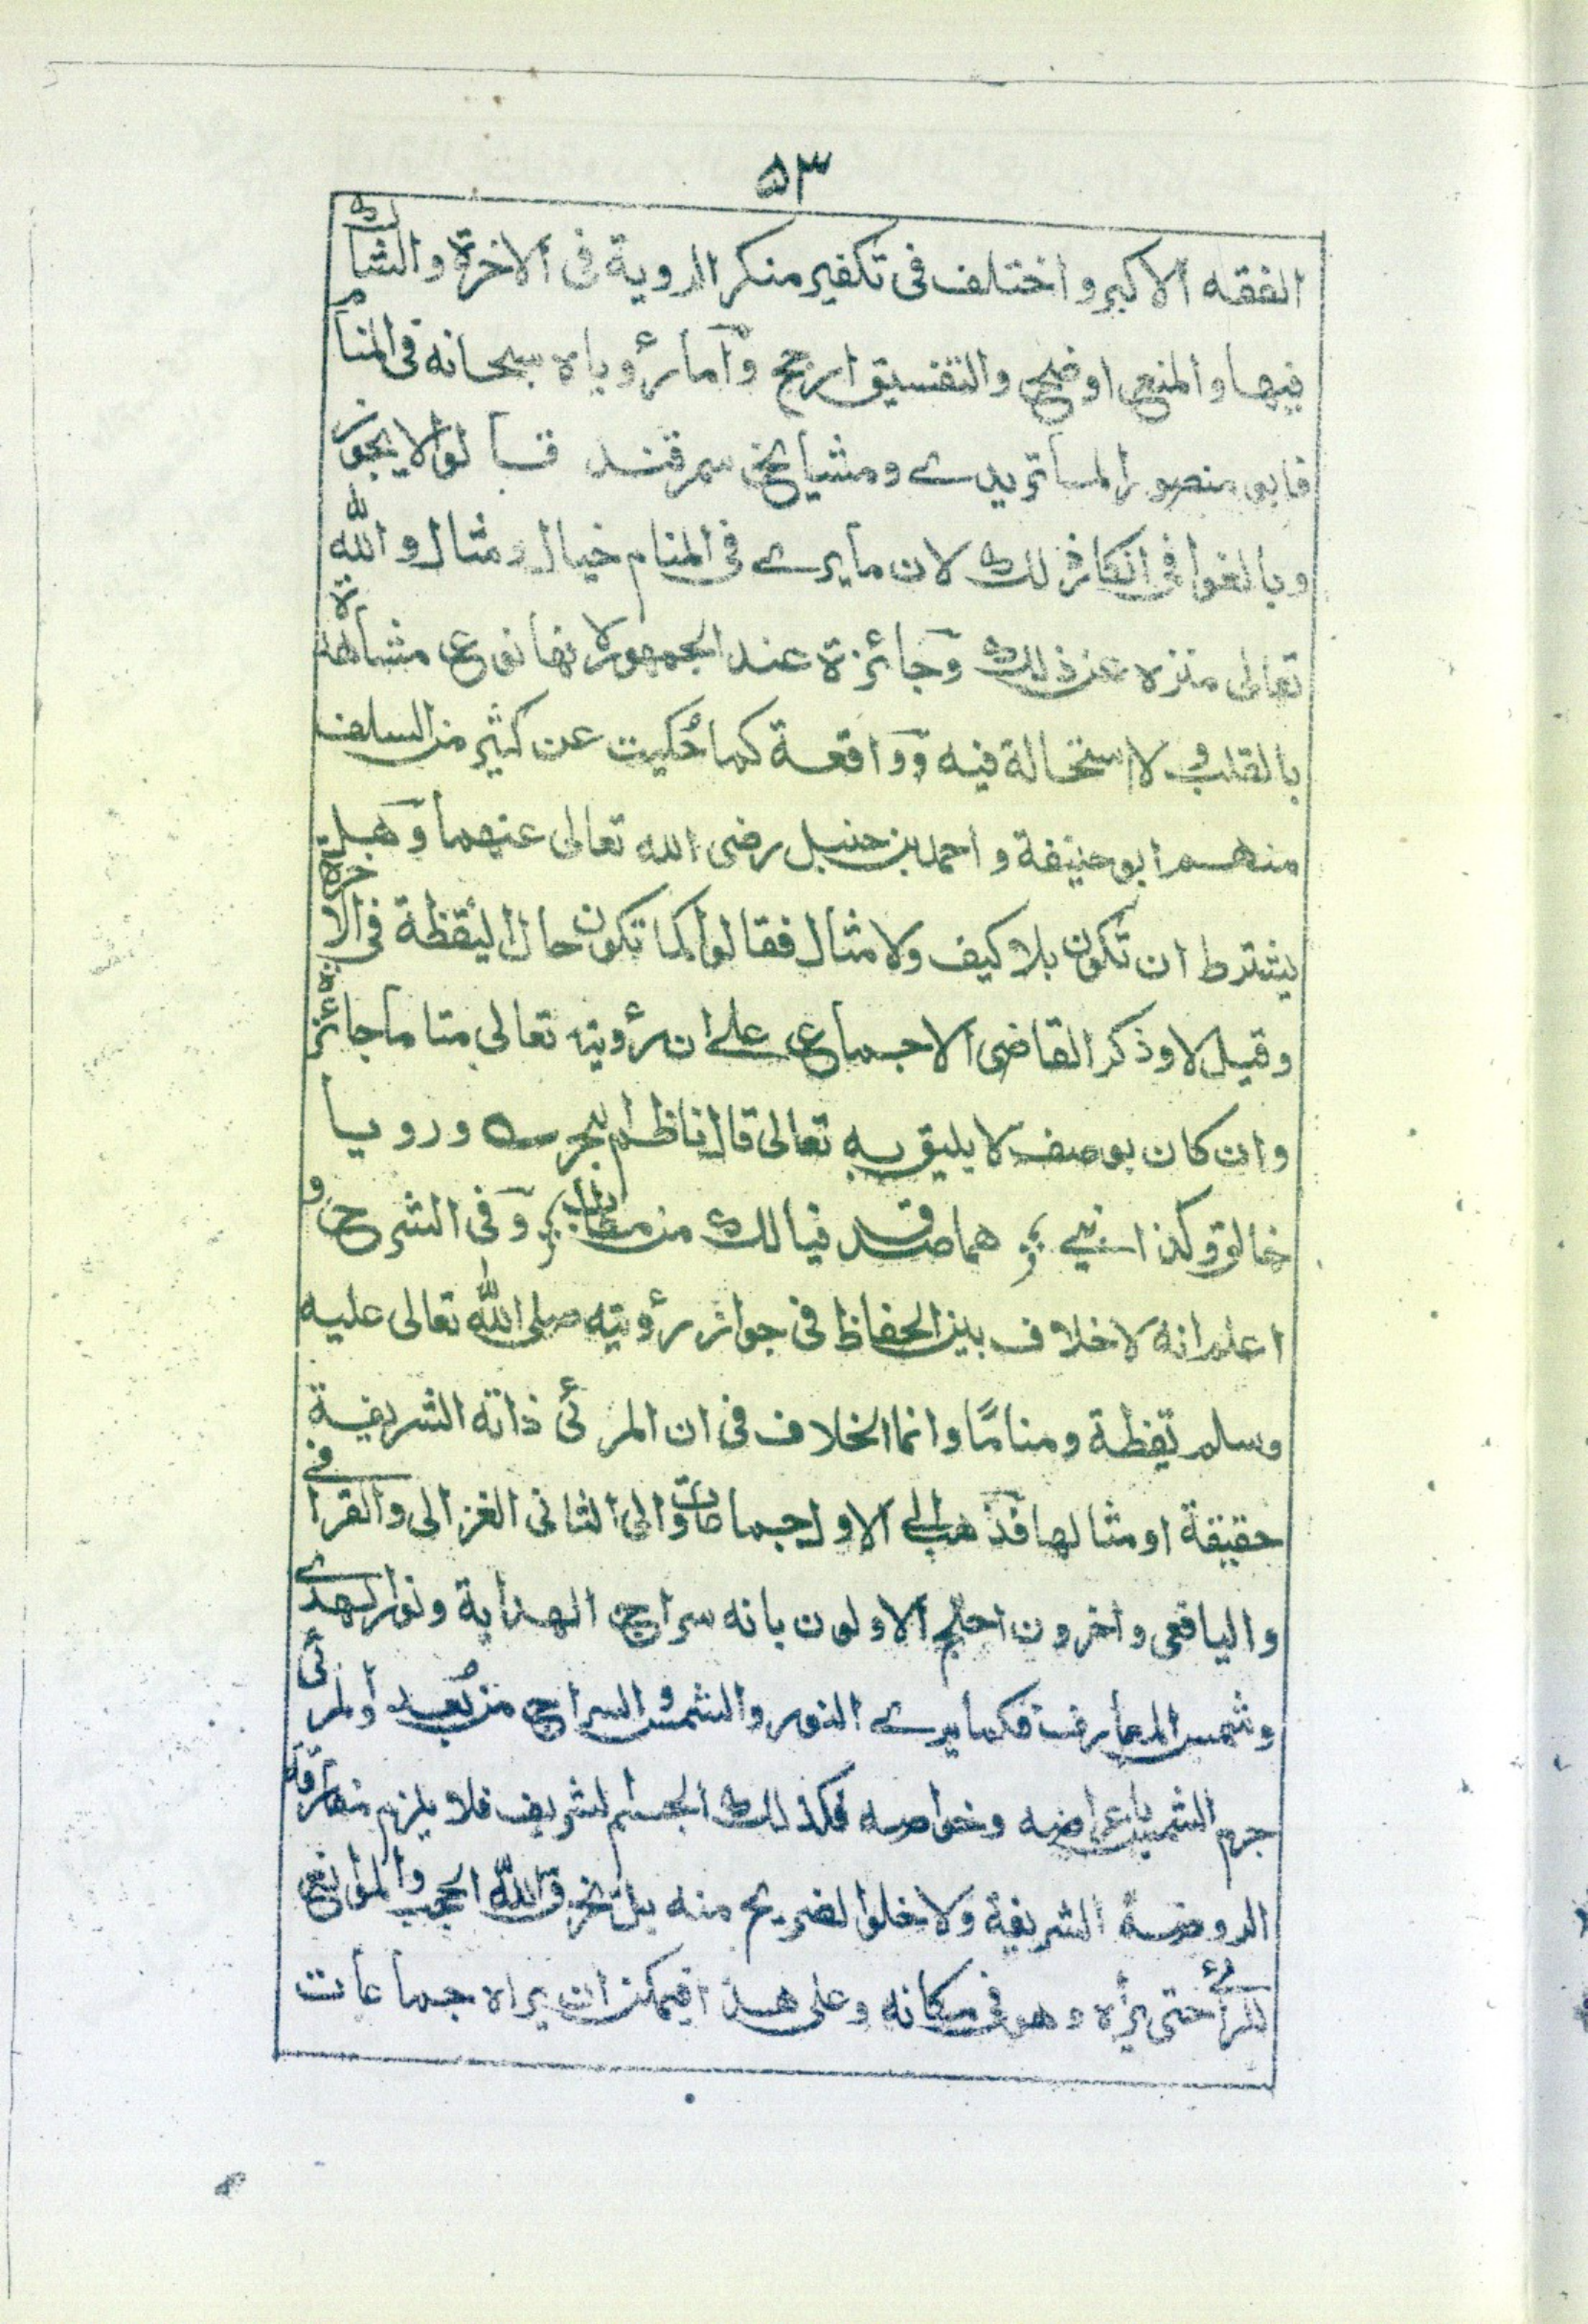 ٥٣
الفقه الاكبر واختلف فى تكفير منكر الروية فى الاخرة والشاك
فيها والمنع اوضح والتفسيق ارجح وآما رؤياه سبحانه فى المنام
فابو منصور الماتريدے ومشيايخ سمرقند قالوا لا يجوز
وبالغوا فى انكار ذلك لان ما يرے فى المنام خيال ومثال والله
تعالى منزه عن ذلك وجائزة عند الجمهور لانها نوع مشاهدة
بالقلب ولا استحالة فيه وواقعة كما حُكيت عن كثير من السلف
منهم ابو حنيفة واحمد بن حنبل رضى الله تعالى عنهما وهل
يشترط ان تكون بلا كيف ولا مثال فقالوا كما تكون حال اليقظة فى الاخرة
وقيل لا وذكر القاضى الاجماع على ان رؤيته تعالى مناما جائزة
وان كان بوصف لا يليق به تعالى قال ناظم بحرے ورويا
خالق وكذا نبے ؛ هما صدق فيا لك من ؛ وفى الشرح و
اعلم انه لا خلاف بين الحفاظ فى جواز رؤيته صلى الله تعالى عليه
وسلم يقظة ومنامًا وانما الخلاف فى ان المرئى ذاته الشريفة
حقيقة او مثالها فذهب الى الاول جماعات والى الثانى الغزالى والقرافے
واليافعى واخرون احتج الاولون بانه سراج الهداية ونور الهدے
وشمس المعارف فكما يرے النور والشمس والسراج من بُعد والمرئى
جرم الشمس باعراضه وخواصه فكذلك الجسم الشريف فلا يلزم مفارقة
الروضة الشريفة ولا خلو الضريح منه بل يخرق الله الحجب والموانع
للرائے حتى يراه وهو فى مكانه وعلى هذا فيمكن ان يراه جماعات